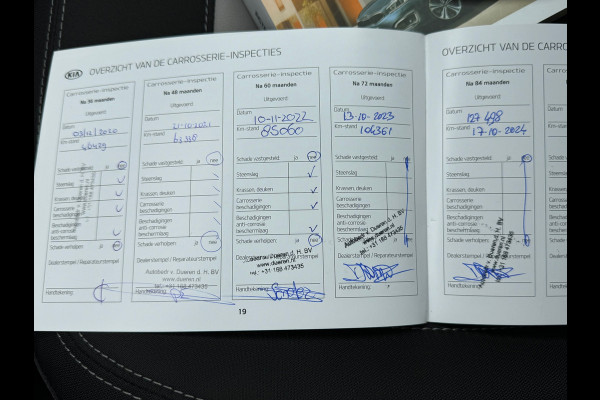 KIA OVERZICHT VAN DE CARROSSERIE-INSPECTIES
Carrosserie-inspectie
Na 36 maanden
Uitgevoerd:
Datum
03/12/2020
Km-stand
Schade vastgesteld: ja nee
Steenslag
Krassen, deuken
Carrosserie
beschadigingen
Beschadigingen
anti-corrosie
beschermlaag
Schade verholpen: ja nee
Dealerstempel / Reparateurstempel
Handtekening:
Carrosserie-inspectie
Na 48 maanden
Uitgevoerd:
Datum
21-10-2021
Km-stand
Schade vastgesteld: ja nee
Steenslag
Krassen, deuken
Carrosserie
beschadigingen
Beschadigingen
anti-corrosie
beschermlaag
Schade verholpen: ja nee
Dealerstempel / Reparateurstempel
Autobedr v. Dueren d. H. BV
www.dueren.nl
Tel.: +31 168 473435
Handtekening:
Carrosserie-inspectie
Na 60 maanden
Uitgevoerd:
Datum
10-11-2022
Km-stand
85060
Schade vastgesteld: ja nee
Steenslag
Krassen, deuken
Carrosserie
beschadigingen
Beschadigingen
anti-corrosie
beschermlaag
Schade verholpen: ja nee
www.dueren.nl
tel.: +31 168 473435
Handtekening:
Carrosserie-inspectie
Na 72 maanden
Uitgevoerd:
Datum
13-10-2023
Km-stand
104361
Schade vastgesteld: ja nee
Steenslag
Krassen, deuken
Carrosserie
beschadigingen
Beschadigingen
anti-corrosie
beschermlaag
Schade verholpen:
Autobedr v. Dueren d. H. BV
www.dueren.nl
tel.: +31 168 473435
Dealerstempel / Reparateurstempel
Handtekening:
19
OVERZICHT VAN DE CARRO
Carrosserie-inspectie
Na 84 maanden
Uitgevoerd:
Datum
127 498
Km-stand
17-10-2024
Schade vastgesteld: ja nee
Steenslag
Krassen, deuken
Carrosserie
beschadigingen
Beschadigingen
anti-corrosie
beschermlaag
Schade verholpen:
Dealerstempel / Reparateurstempel
Autobedr v. Dueren d. H. BV
www.dueren.nl
tel.: +31 168 473435
Handtekening: